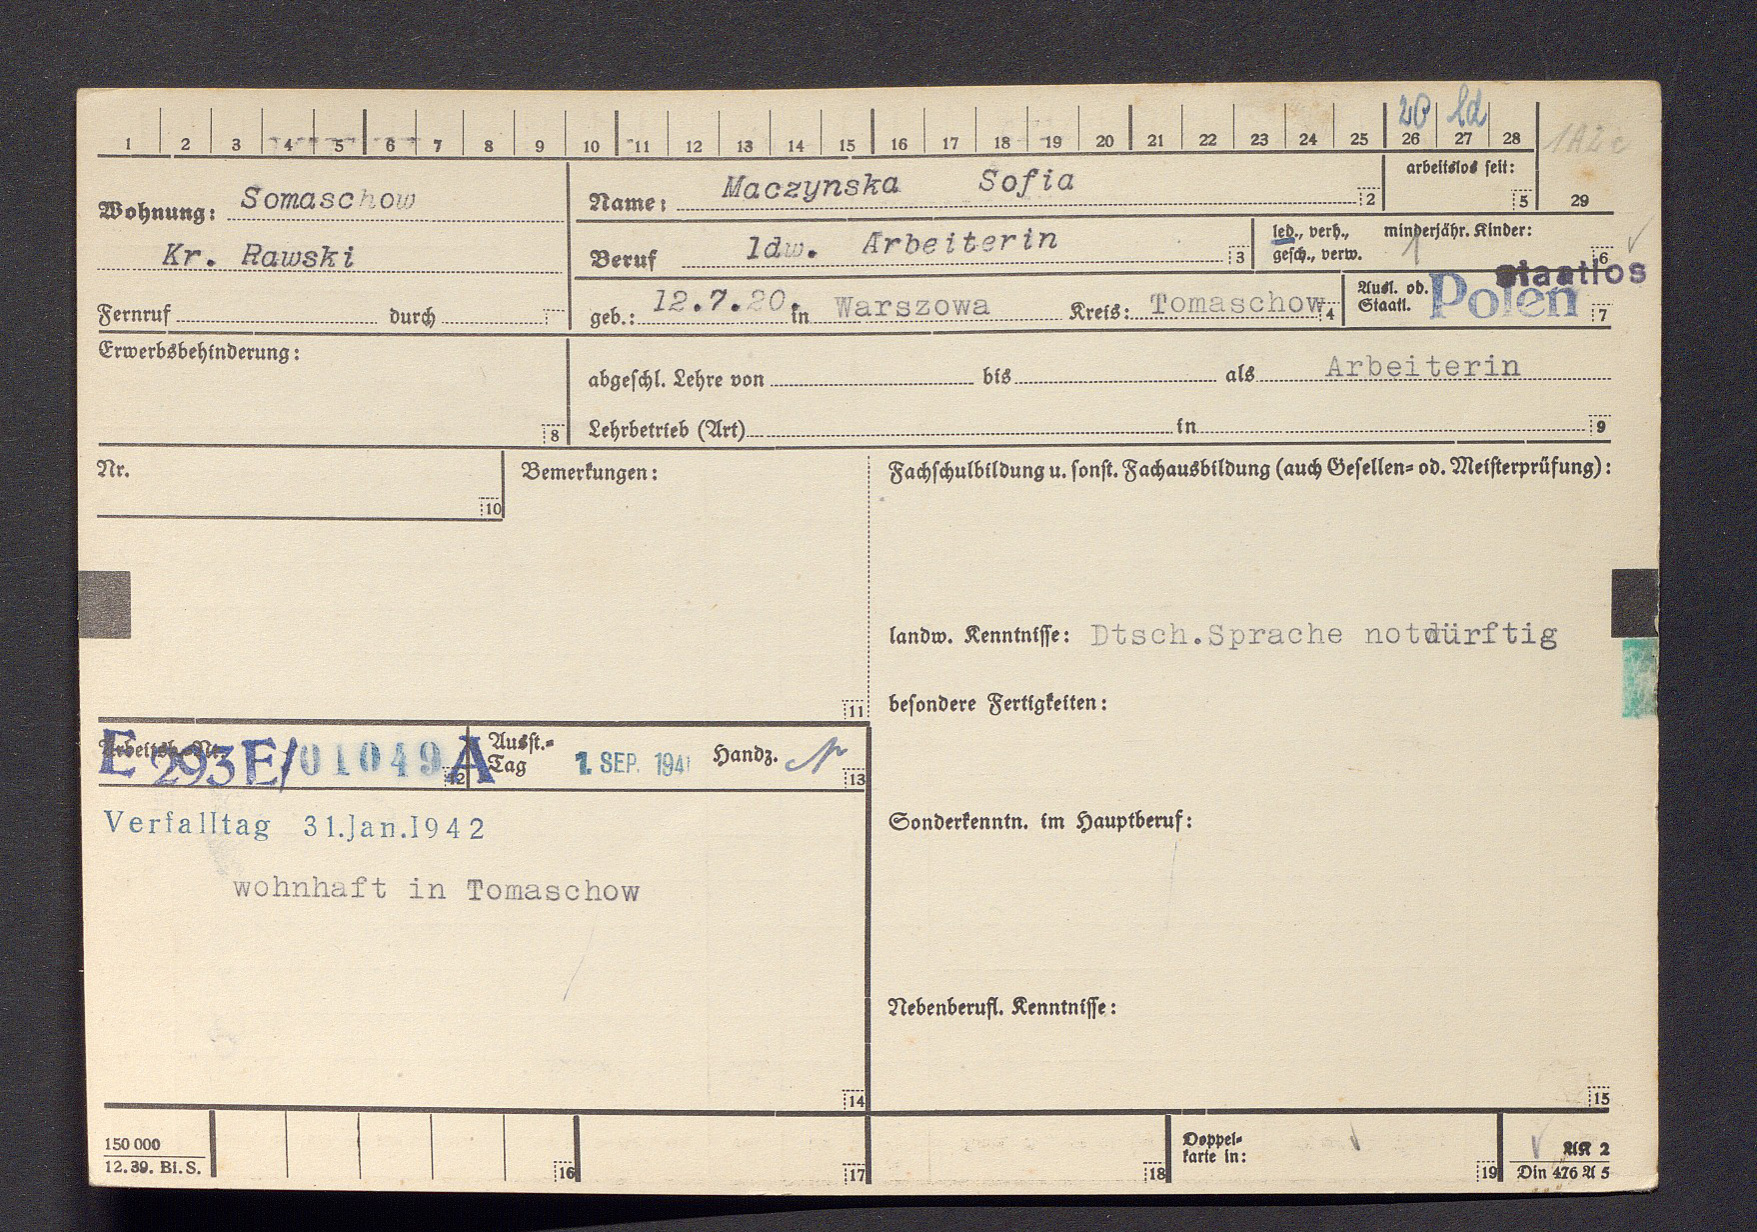 20 ld
1 2 3 4 5 6 7 8 9 10 11 12 13 14 15 16 17 18 19 20 21 22 23 24 25 26 27 28
1A2c
arbeitslos seit:
5 29
Wohnung: Somaschow
Kr. Rawski
Name: Maczynska Sofia 2
Beruf ldw. Arbeiterin 3
led., verh., minderjähr. Kinder:
gesch., verw. 1 6
staatlos
Fernruf durch
geb.: 12.7.20. in Warszowa Kreis: Tomaschow 4
Ausl. od.
Staatl. Polen 7
Erwerbsbehinderung:
8
abgeschl. Lehre von bis als Arbeiterin
Lehrbetrieb (Art) in 9
Nr.
10
Bemerkungen:
11
Fachschulbildung u. sonst. Fachausbildung (auch Gesellen- od. Meisterprüfung):
landw. Kenntnisse: Dtsch.Sprache notdürftig
besondere Fertigkeiten:
Arbeitsb.-Nr.
E 293E/01049 A 12
Ausst.-
Tag 1. SEP. 1941 Handz. 13
Verfalltag 31.Jan.1942
wohnhaft in Tomaschow
14
Sonderkenntn. im Hauptberuf:
Nebenberufl. Kenntnisse:
15
150 000
12.39. Bl. S.
16 17 18
Doppel-
karte in:
19
AK 2
Din 476 A 5